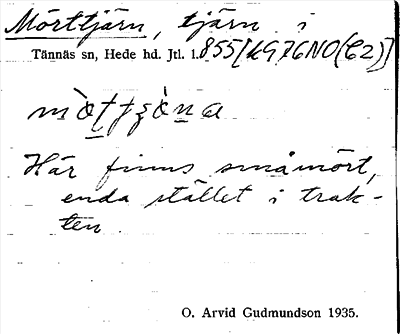 Mörttjärn, tjärn i
Tännäs sn, Hede hd. Jtl. l. 855[kG76NO(C2)]
Här finns småmört,
enda stället i trak-
ten
O. Arvid Gudmundson 1935.